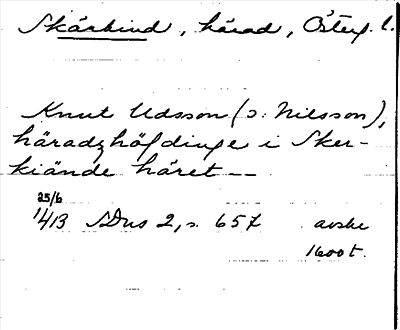 Skärkind, härad, Österg. l.
Knut Udsson (s: Nilsson),
häradzhöfdinge i Sker-
kiände häret --
25/6
1413 SDns 2, s. 657 avskr
1600 t.